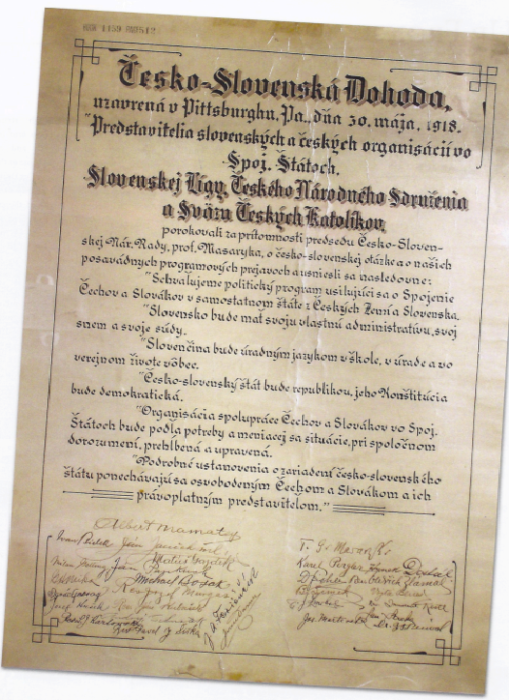 Česko-Slovenská Dohoda,
uzavrená v Pittsburghu, Pa., dňa 30. mája, 1918.
"Predstavitelia slovenských a českých organisácií vo
Spoj. Štátoch,
Slovenskej Ligy, Českého Národného Sdruženia
a Sväzu Českých Katolíkov,
porokovali za prítomnosti predsedu Česko-Sloven-
skej Nár. Rady, prof. Masaryka, o česko-slovenskej otázke a o našich
posavádnych programových prejavoch a usniesli sa nasledovne:
"Schvaľujeme politický program usilujúci sa o Spojenie
Čechov a Slovákov v samostatnom štáte z Českých Zemí a Slovenska.
"Slovensko bude mať svoju vlastnú administratívu, svoj
snem a svoje súdy.
"Slovenčina bude úradným jazykom v škole, v úrade a vo
verejnom živote vôbec.
"Česko-slovenský štát bude republikou, jeho Konštitúcia
bude demokratická.
"Organisácia spolupráce Čechov a Slovákov vo Spoj.
Štátoch bude podľa potreby a meniacej sa situácie, pri spoločnom
dorozumení, prehĺbená a upravená.
"Podrobné ustanovenia o zariadení česko-slovenského
štátu ponechávajú sa osvobodeným Čechom a Slovákom a ich
právoplatným predstaviteľom."
Albert Mamatey
T. G. Masaryk
Ivan Bielek
Karel Pergler
Michael Bosak